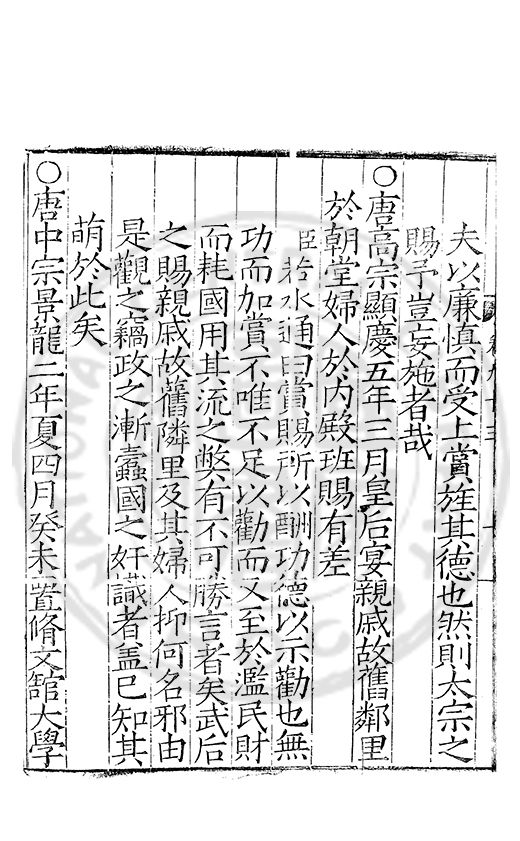 夫以廉慎而受上賞旌其德也然則太宗之
賜予豈妄施者哉
○唐高宗顯慶五年三月皇后宴親戚故舊鄰里
於朝堂婦人於內殿班賜有差
臣若水通曰賞賜所以酬功德以示勸也無
功而加賞不唯不足以勸而又至於濫民財
而耗國用其流之弊有不可勝言者矣武后
之賜親戚故舊隣里及其婦人抑何名邪由
是觀之竊政之漸蠹國之奸識者盖已知其
萌於此矣
○唐中宗景龍二年夏四月癸未置脩文館大學